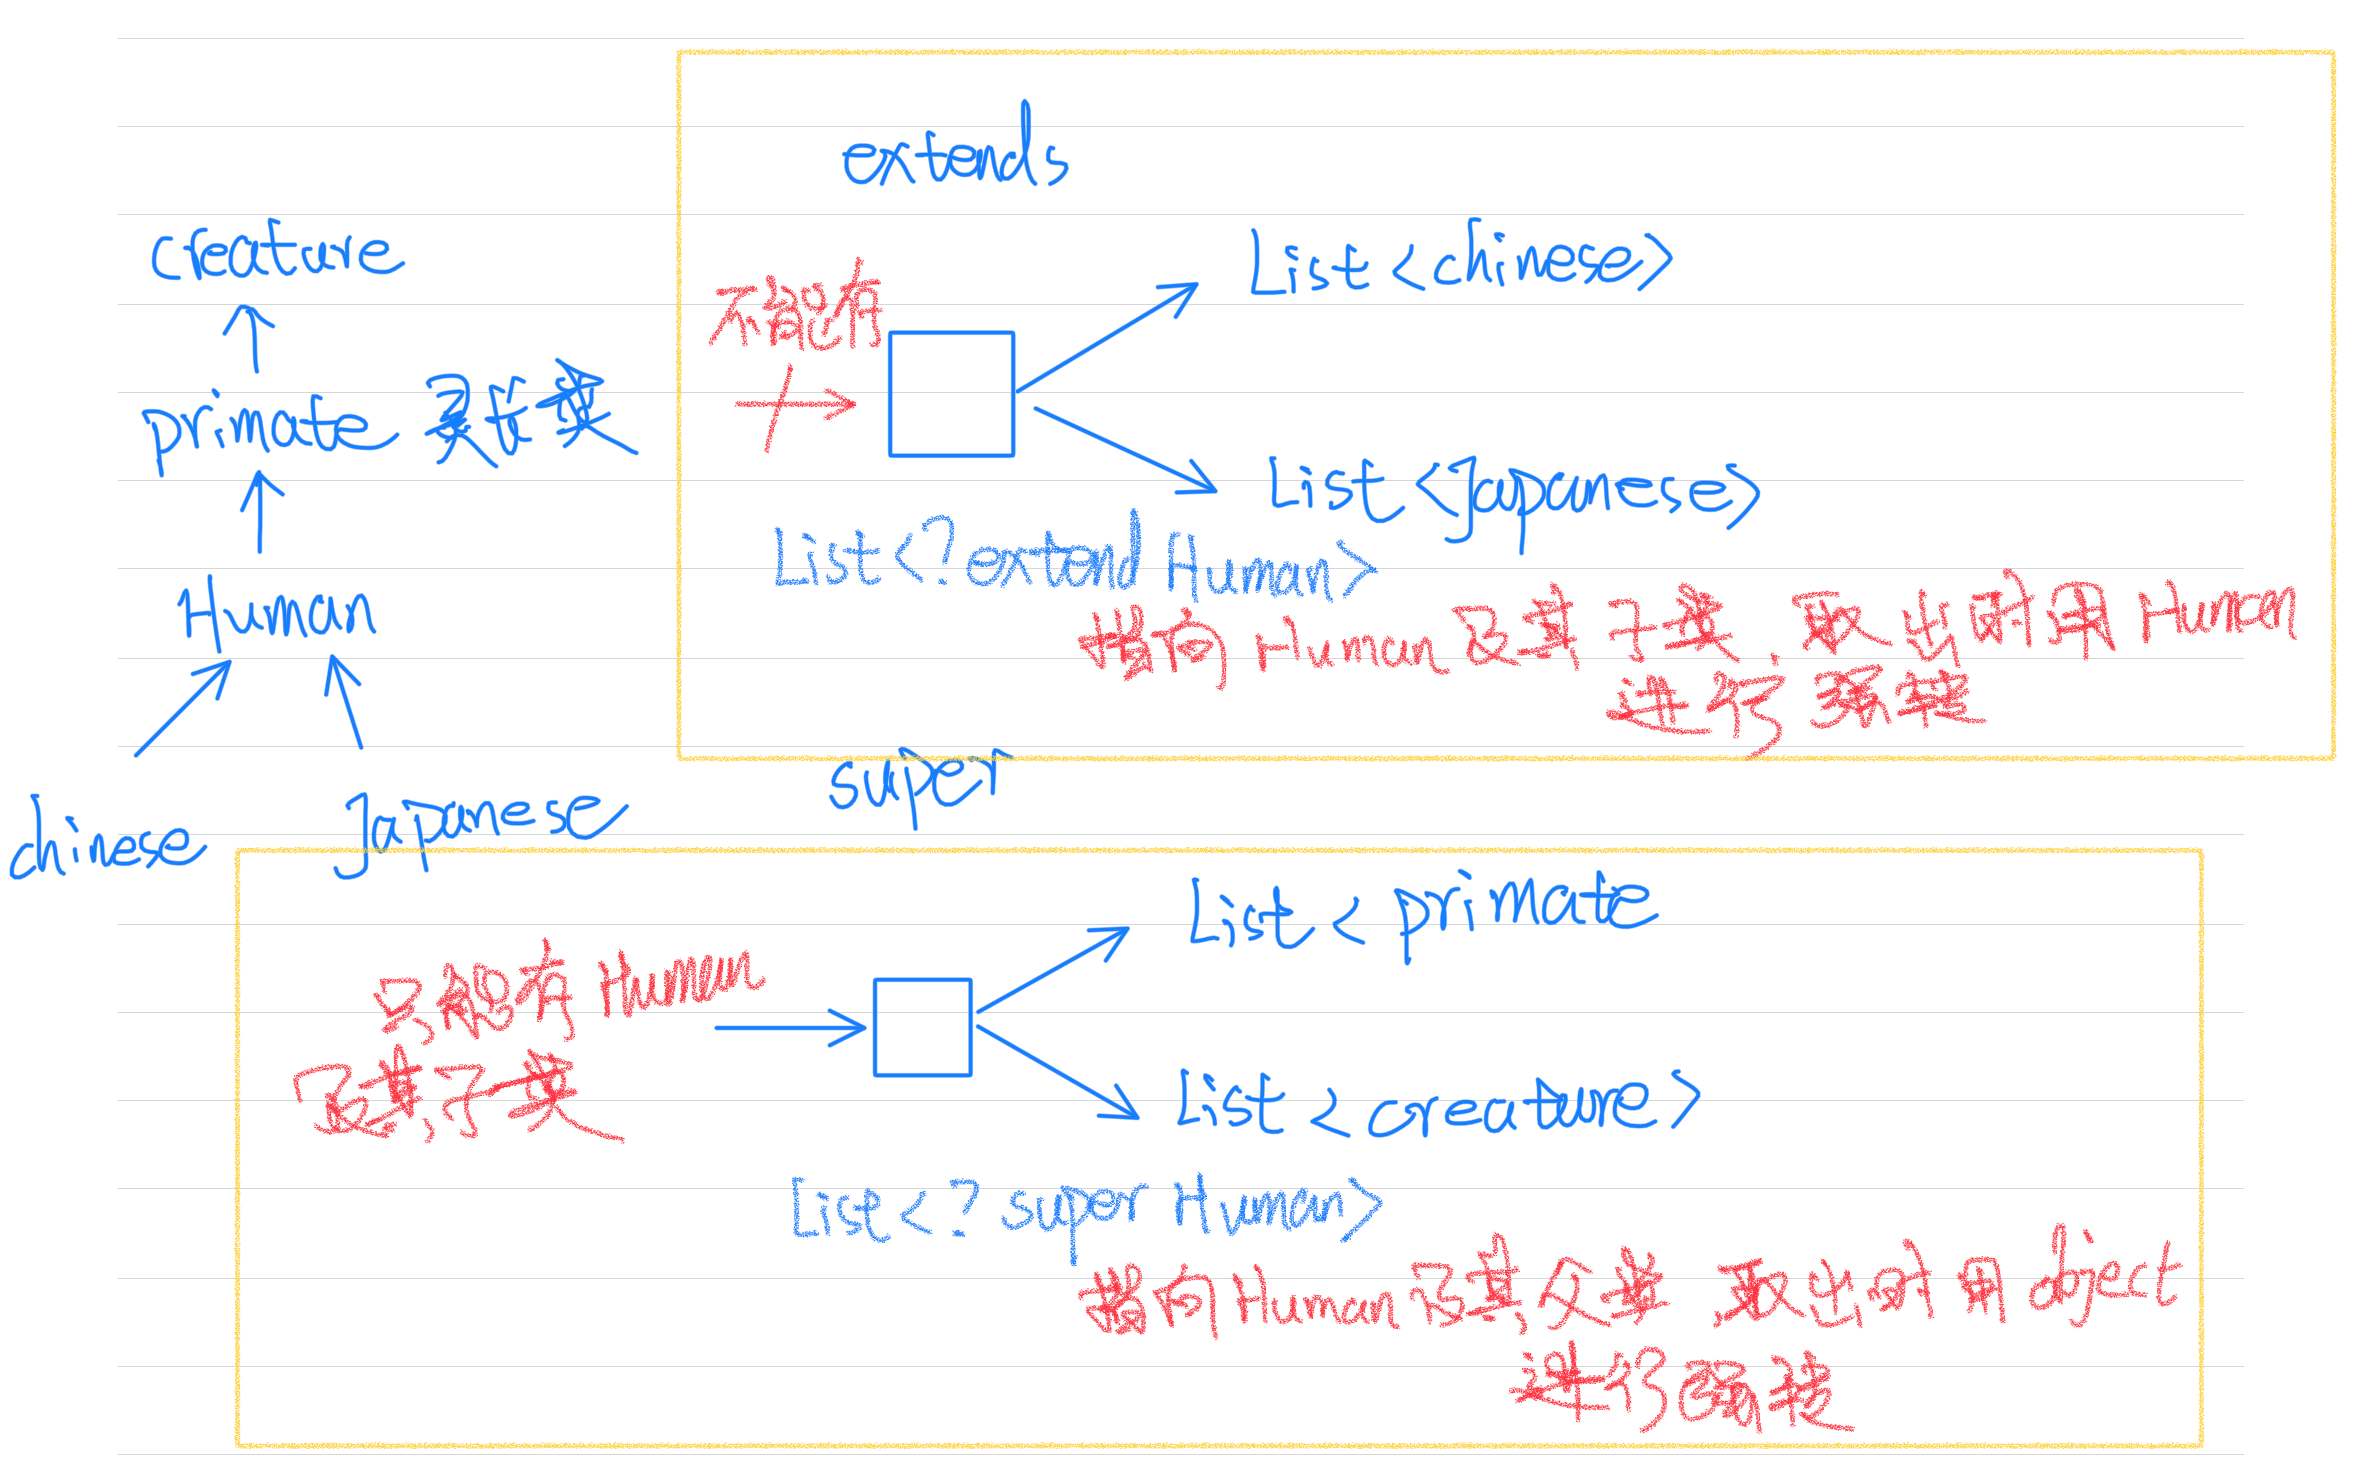 creature
primate 灵长类
Human
chinese
Japanese
extends
不能存
List<chinese>
List<Japanese>
List<? extend Human>
指向 Human 及其子类, 取出时用 Human
进行强转
super
只能存 Human
及其子类
List< primate
List< creature>
List<? super Human>
指向 Human 及其父类 取出时用 object
进行强转